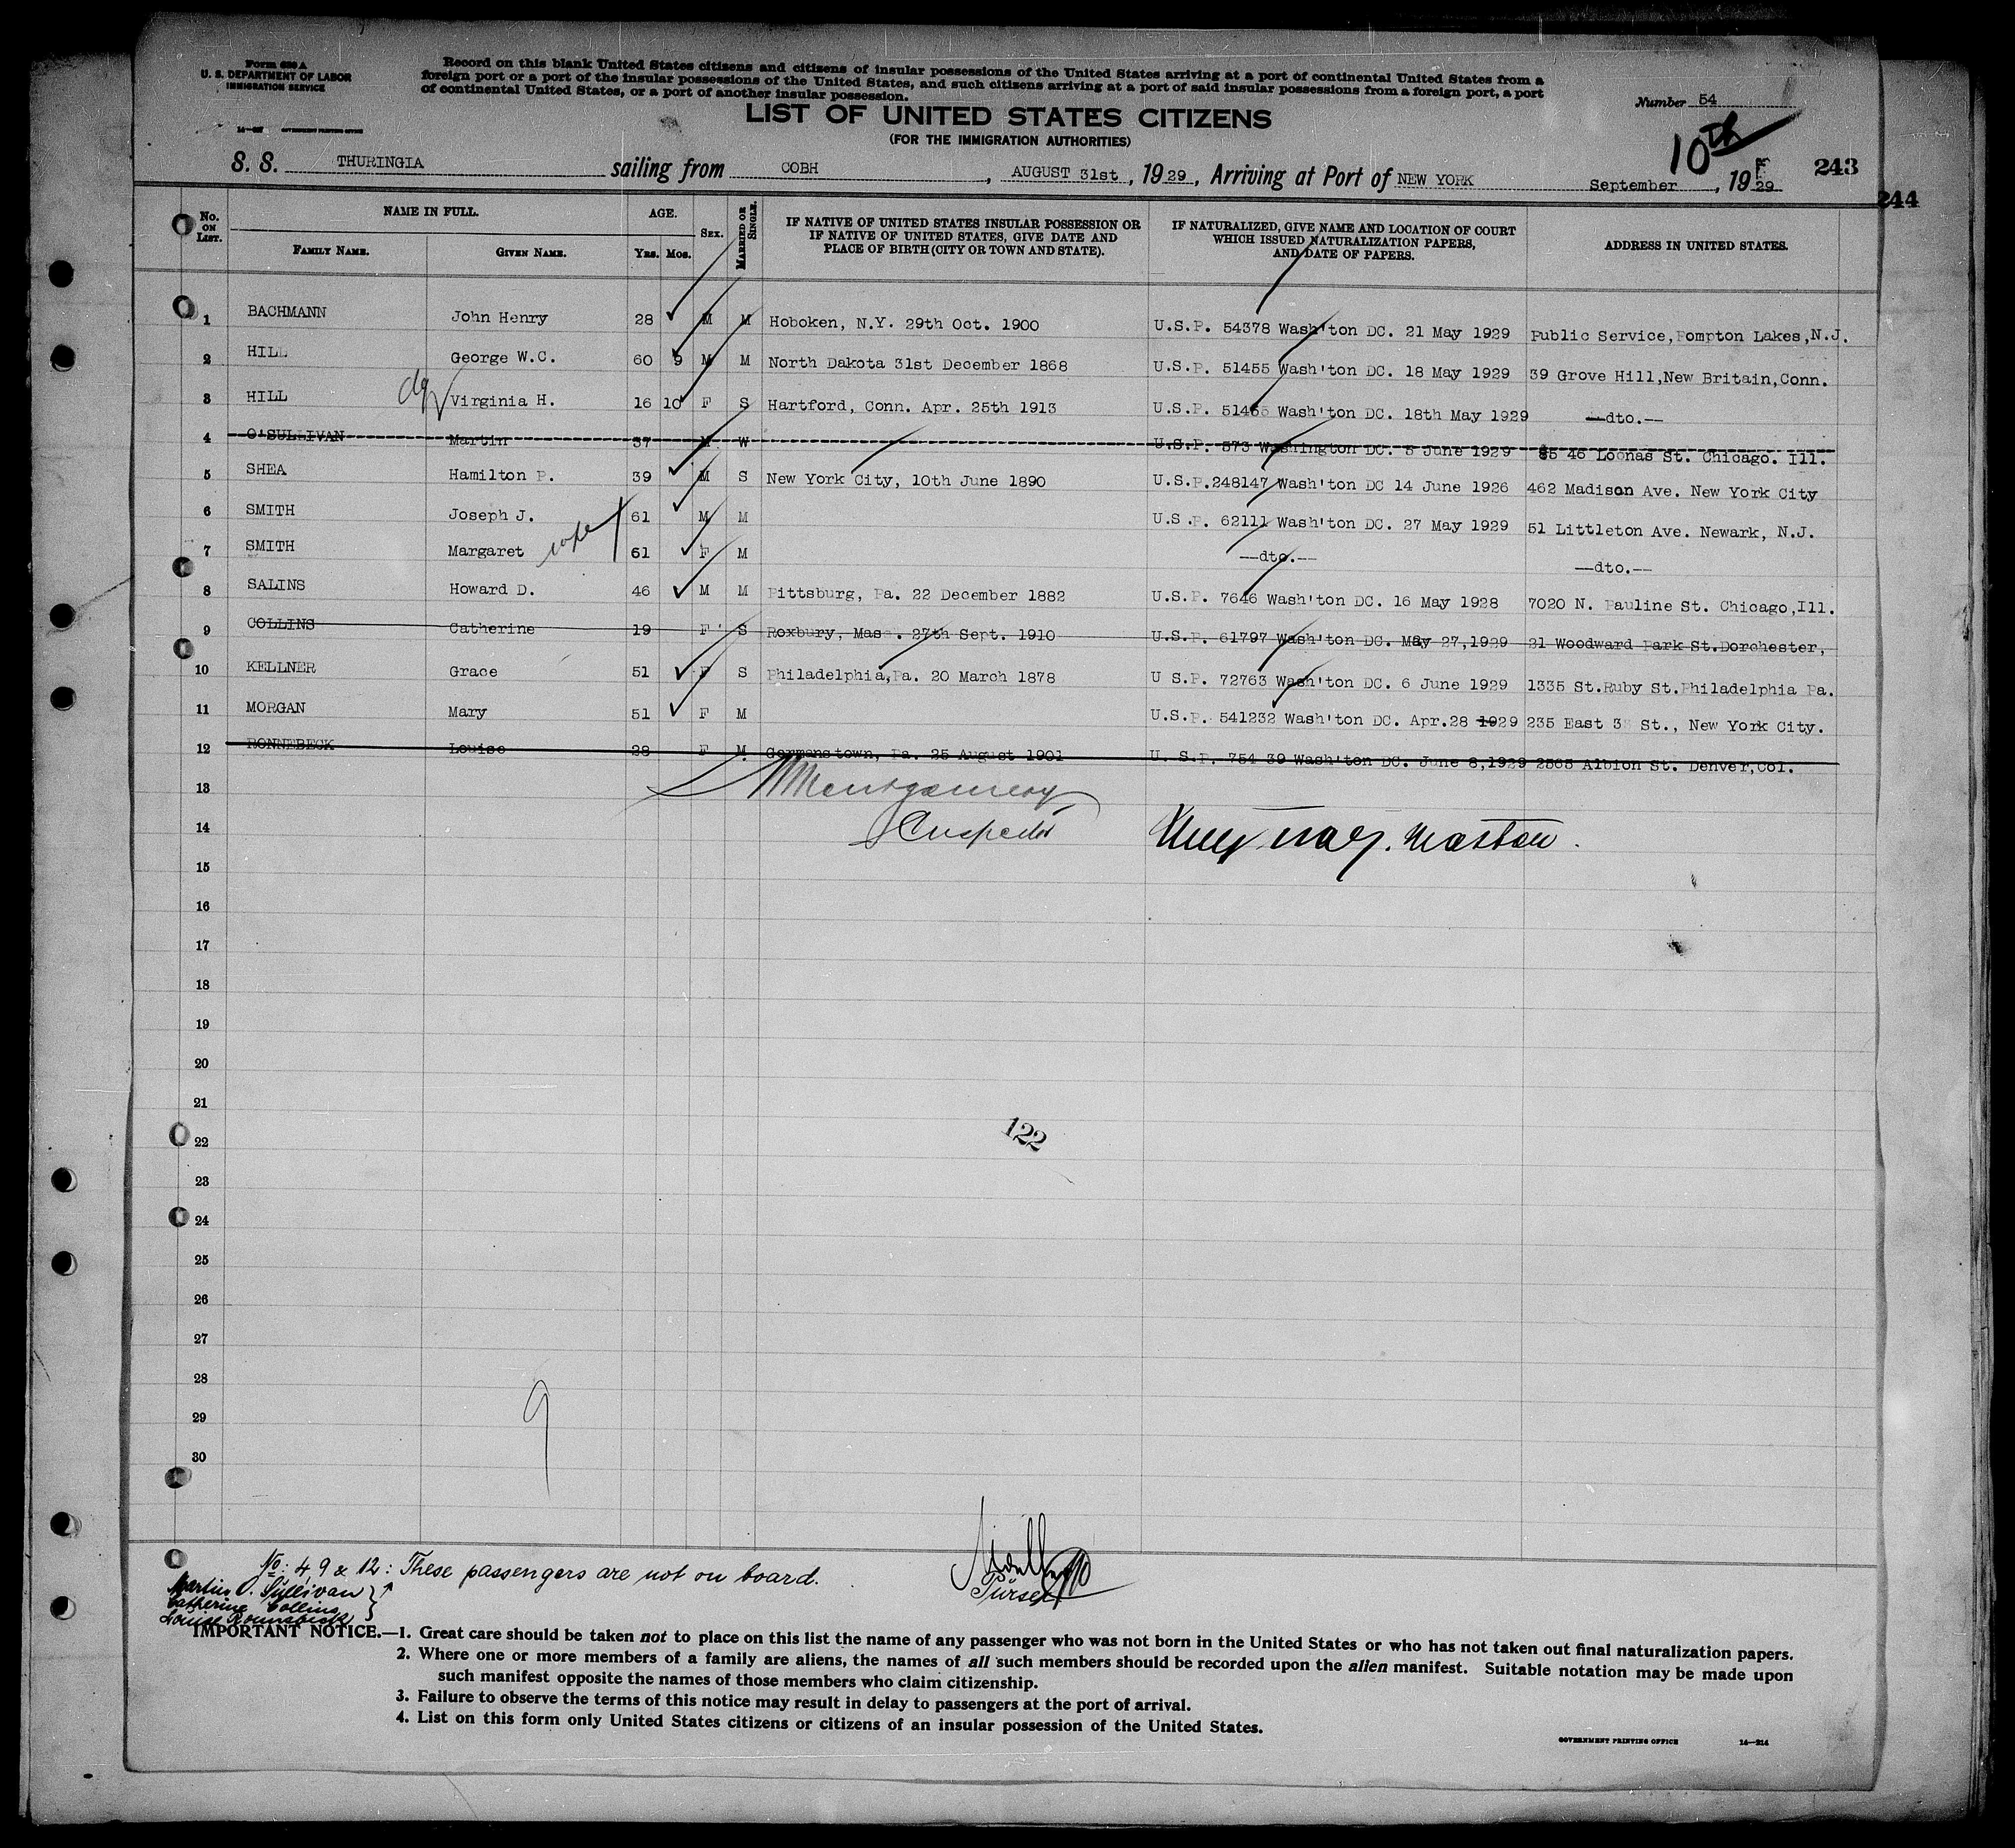 Form 630 A
U. S. DEPARTMENT OF LABOR
IMMIGRATION SERVICE
Record on this blank United States citizens and citizens of insular possessions of the United States arriving at a port of continental United States from a
foreign port or a port of the insular possessions of the United States, and such citizens arriving at a port of said insular possessions from a foreign port, a port
of continental United States, or a port of another insular possession.
GOVERNMENT PRINTING OFFICE
LIST OF UNITED STATES CITIZENS
(FOR THE IMMIGRATION AUTHORITIES)
Number 54
10th
243
244
S. S. THURINGIA sailing from COBH, AUGUST 31st, 1929, Arriving at Port of NEW YORK September, 1929
No. ON LIST. NAME IN FULL. AGE. SEX. MARRIED OR SINGLE. IF NATIVE OF UNITED STATES INSULAR POSSESSION OR IF NATIVE OF UNITED STATES, GIVE DATE AND PLACE OF BIRTH (CITY OR TOWN AND STATE). IF NATURALIZED, GIVE NAME AND LOCATION OF COURT WHICH ISSUED NATURALIZATION PAPERS, AND DATE OF PAPERS. ADDRESS IN UNITED STATES.
FAMILY NAME. GIVEN NAME. Yrs. Mos.
1 BACHMANN John Henry 28 M M Hoboken, N.Y. 29th Oct. 1900 U.S.P. 54378 Wash'ton DC. 21 May 1929 Public Service, Pompton Lakes, N.J.
2 HILL George W.C. 60 9 M M North Dakota 31st December 1868 U.S.P. 51455 Wash'ton DC. 18 May 1929 39 Grove Hill, New Britain, Conn.
3 HILL Virginia H. 16 10 F S Hartford, Conn. Apr. 25th 1913 U.S.P. 51465 Wash'ton DC. 18th May 1929 --dto.--
4 O'SULLIVAN Martin 37 M W U.S.P. 573 Washington DC. 5 June 1929 46 Loonas St. Chicago. Ill.
5 SHEA Hamilton P. 39 M S New York City, 10th June 1890 U.S.P. 248147 Wash'ton DC 14 June 1926 462 Madison Ave. New York City
6 SMITH Joseph J. 61 M M U.S.P. 62111 Wash'ton DC. 27 May 1929 51 Littleton Ave. Newark, N.J.
7 SMITH Margaret wife 61 F M --dto.-- --dto.--
8 SALINS Howard D. 46 M M Pittsburg, Pa. 22 December 1882 U.S.P. 7646 Wash'ton DC. 16 May 1928 7020 N. Pauline St. Chicago, Ill.
9 COLLINS Catherine 19 F S Roxbury, Mass. 27th Sept. 1910 U.S.P. 61797 Wash'ton DC. May 27, 1929 21 Woodward Park St. Dorchester,
10 KELLNER Grace 51 F S Philadelphia, Pa. 20 March 1878 U S.P. 72763 Wash'ton DC. 6 June 1929 1335 St. Ruby St. Philadelphia Pa.
11 MORGAN Mary 51 F M U.S.P. 541232 Wash'ton DC. Apr. 28 1929 235 East 3 St., New York City.
12 RONNEBECK Louise 28 F M. Germanstown, Pa. 25 August 1901 U. S.P. 754 39 Wash'ton DC. June 8, 1929 2565 Albion St. Denver, Col.
13 Montgomery
14 Inspector
15
16
17
18
19
20
21
22
122
23
24
25
26
27
28
29
9
30
No: 4, 9 & 12: These passengers are not on board.
Martin O. Sullivan
Catherine Collins
Louise Ronnebeck
Purser
IMPORTANT NOTICE.—1. Great care should be taken not to place on this list the name of any passenger who was not born in the United States or who has not taken out final naturalization papers.
2. Where one or more members of a family are aliens, the names of all such members should be recorded upon the alien manifest. Suitable notation may be made upon
such manifest opposite the names of those members who claim citizenship.
3. Failure to observe the terms of this notice may result in delay to passengers at the port of arrival.
4. List on this form only United States citizens or citizens of an insular possession of the United States.
GOVERNMENT PRINTING OFFICE 14—214